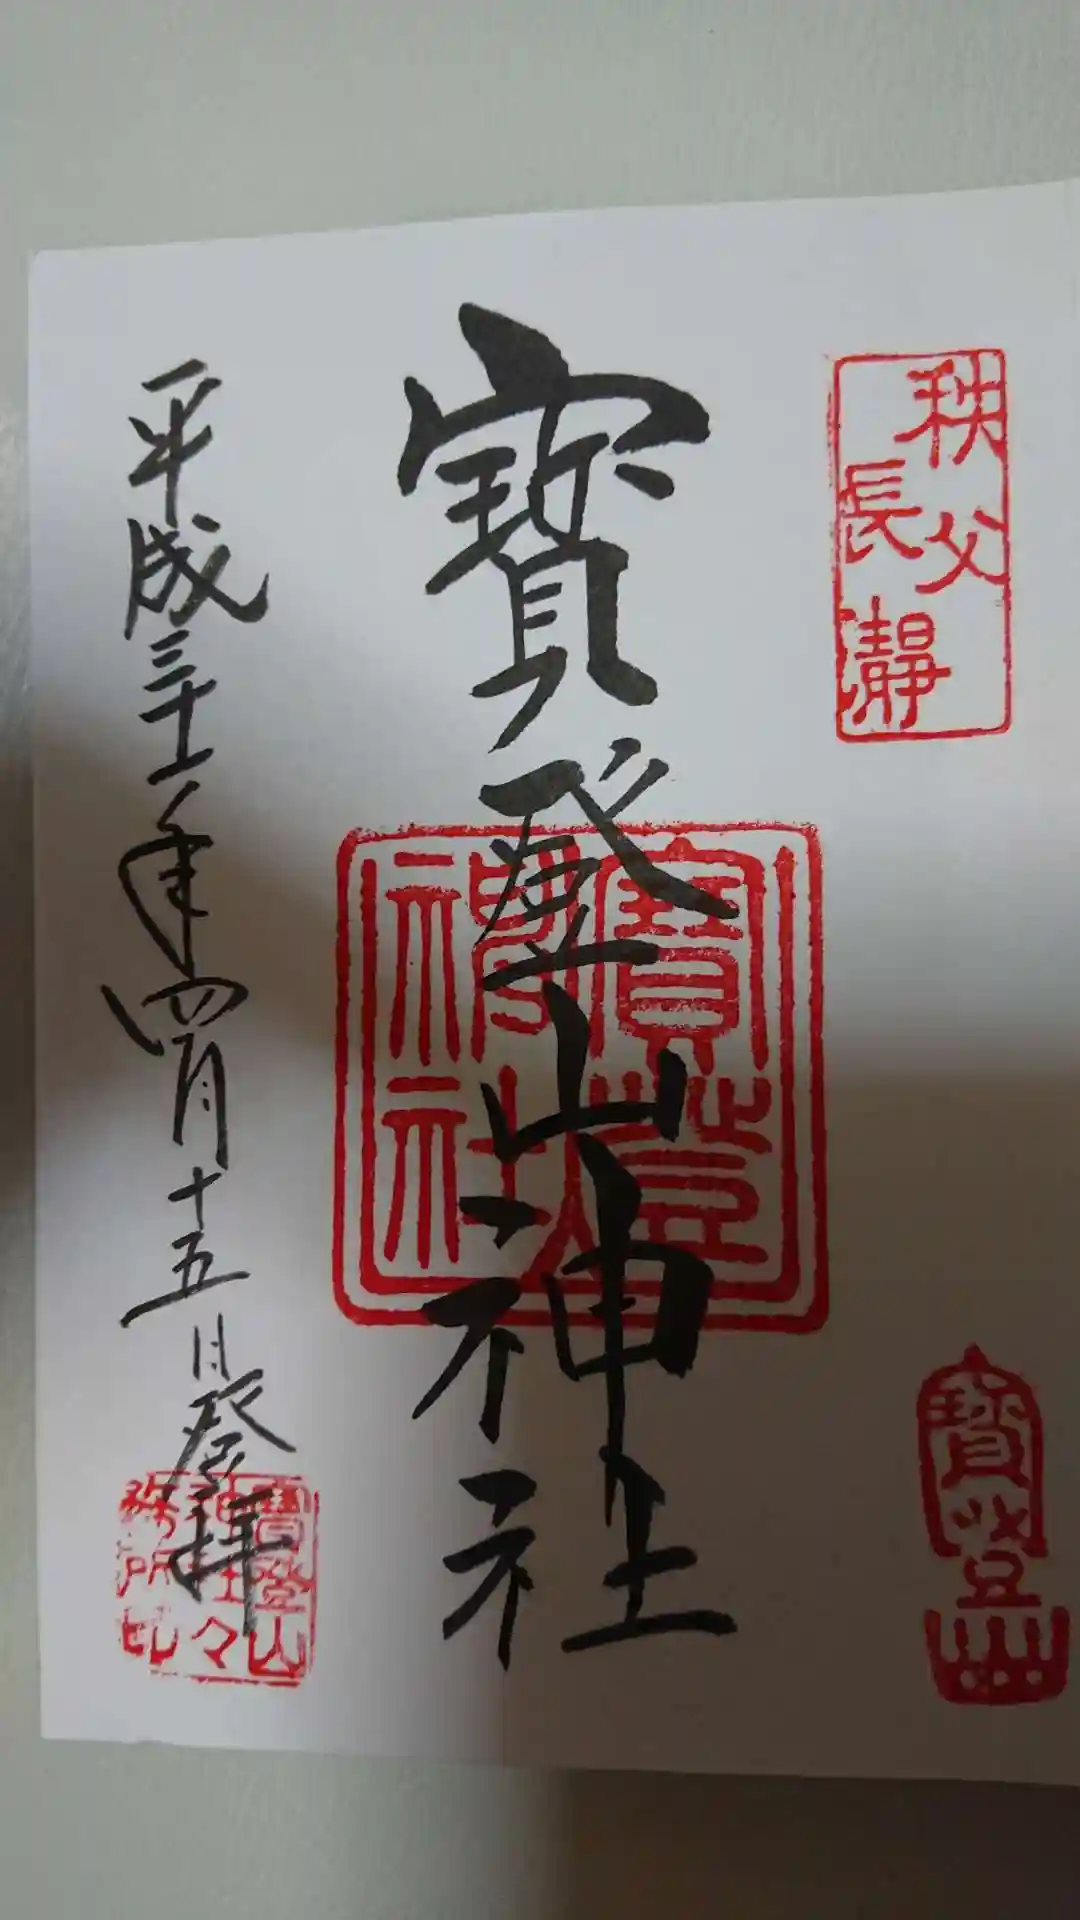 秩父
長瀞
寶登山
寶登山神社
寶登山
神社
平成三十一年四月十五日登拝
寶登山
神社々
務所印